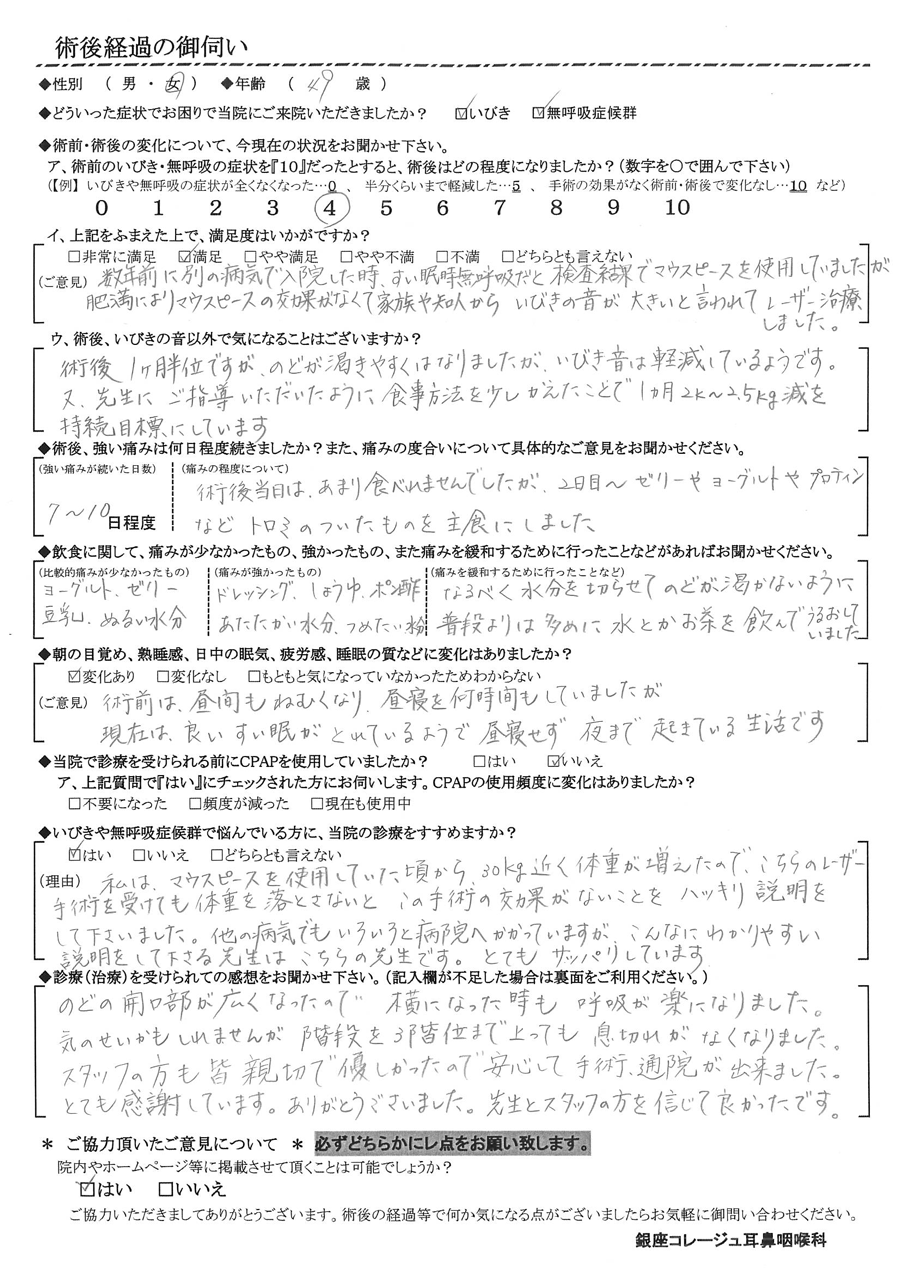 術後経過の御伺い
◆性別 （ 男 ・ 女 ） ◆年齢 （ 49 歳 ）
◆どういった症状でお困りで当院にご来院いただきましたか？ ☑いびき ☑無呼吸症候群
◆術前・術後の変化について、今現在の状況をお聞かせ下さい。
ア、術前のいびき・無呼吸の症状を『10』だったとすると、術後はどの程度になりましたか？（数字を〇で囲んで下さい）
（【例】 いびきや無呼吸の症状が全くなくなった…0 、 半分くらいまで軽減した…5 、 手術の効果がなく術前・術後で変化なし…10 など）
0 1 2 3 4 5 6 7 8 9 10
イ、上記をふまえた上で、満足度はいかがですか？
□非常に満足 ☑満足 □やや満足 □やや不満 □不満 □どちらとも言えない
（ご意見） 数年前に別の病気で入院した時、すい眠時無呼吸だと検査結果でマウスピースを使用していましたが
肥満によりマウスピースの効果がなくて家族や知人から いびきの音が大きいと言われて レーザー治療
しました。
ウ、術後、いびきの音以外で気になることはございますか？
術後 1ヶ月半位ですが、のどが渇きやすくはなりましたが、いびき音は軽減しているようです。
又、先生に ご指導いただいたように 食事方法を少しかえたことで 1カ月2k～2.5kg減を
持続目標にしています
◆術後、強い痛みは何日程度続きましたか？また、痛みの度合いについて具体的なご意見をお聞かせください。
（強い痛みが続いた日数） （痛みの程度について）
術後当日は、あまり食べれませんでしたが、2日目～ゼリーやヨーグルトやプロティン
7～10日程度 など トロミのついたものを主食にしました
◆飲食に関して、痛みが少なかったもの、強かったもの、また痛みを緩和するために行ったことなどがあればお聞かせください。
（比較的痛みが少なかったもの） （痛みが強かったもの） （痛みを緩和するために行ったことなど）
ヨーグルト、ゼリー ドレッシング、しょうゆ、ポン酢 なるべく水分を切らせてのどが渇かないように
豆乳、ぬるい水分 あたたかい水分、つめたい物 普段よりは多めに水とかお茶を飲んでうるおして
いました
◆朝の目覚め、熟睡感、日中の眠気、疲労感、睡眠の質などに変化はありましたか？
☑変化あり □変化なし □もともと気になっていなかったためわからない
（ご意見） 術前は、昼間もねむくなり、昼寝を何時間もしていましたが
現在は、良いすい眠がとれているようで昼寝せず 夜まで起きている生活です
◆当院で診療を受けられる前にCPAPを使用していましたか？ □はい ☑いいえ
ア、上記質問で『はい』にチェックされた方にお伺いします。CPAPの使用頻度に変化はありましたか？
□不要になった □頻度が減った □現在も使用中
◆いびきや無呼吸症候群で悩んでいる方に、当院の診療をすすめますか？
☑はい □いいえ □どちらとも言えない
（理由） 私は、マウスピースを使用していた頃から、30kg近く体重が増えたので、こちらのレーザー
手術を受けても体重を落とさないと この手術の効果がないことを ハッキリ説明を
して下さいました。他の病気でもいろいろと病院へかかっていますが、こんなにわかりやすい
説明をして下さる先生はこちらの先生です。とてもサッパリしています
◆診療（治療）を受けられての感想をお聞かせ下さい。（記入欄が不足した場合は裏面をご利用ください。）
のどの開口部が広くなったので 横になった時も 呼吸が楽になりました。
気のせいかもしれませんが 階段を3階位まで上っても 息切れがなくなりました。
スタッフの方も皆親切で優しかったので安心して手術、通院が出来ました。
とても感謝しています。ありがとうございました。先生とスタッフの方を信じて良かったです。
＊ ご協力頂いたご意見について ＊ 必ずどちらかにレ点をお願い致します。
院内やホームページ等に掲載させて頂くことは可能でしょうか？
☑はい □いいえ
ご協力いただきましてありがとうございます。術後の経過等で何か気になる点がございましたらお気軽に御問い合わせください。
銀座コレージュ耳鼻咽喉科